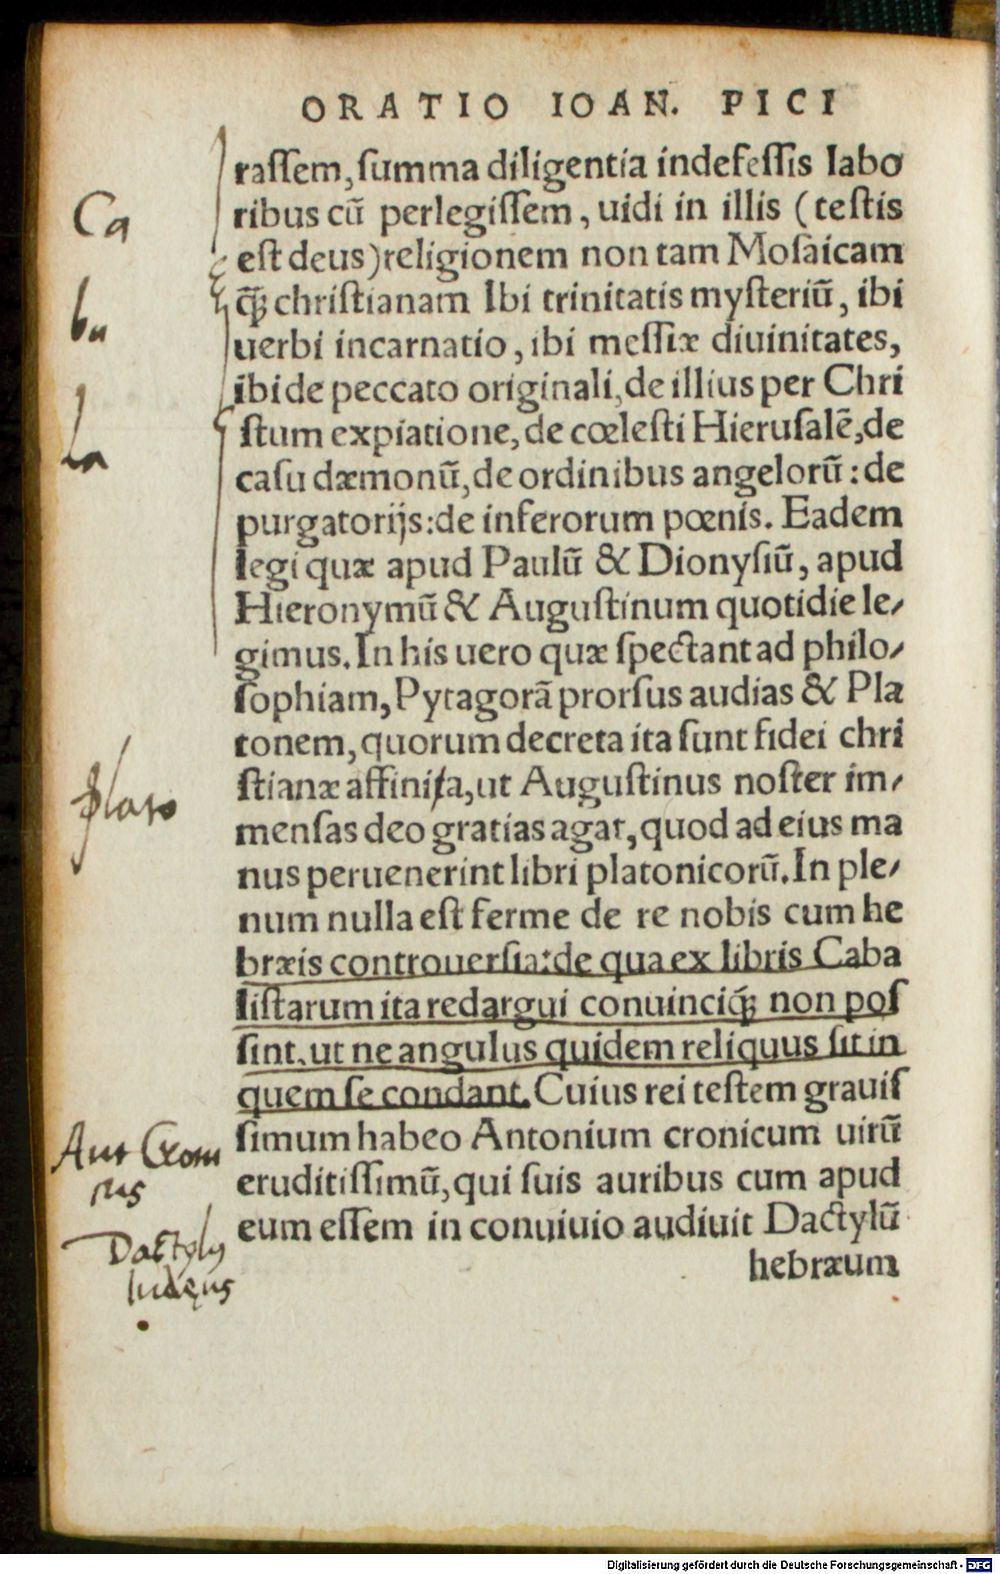 ORATIO IOAN. PICI
raſſem, ſumma diligentia indefeſſis labo
ribus cũ perlegiſſem, uidi in illis (teſtis
eſt deus) religionem non tam Moſaicam
q̃ȝ chriſtianam Ibi trinitatis myſteriũ, ibi
uerbi incarnatio, ibi meſſiæ diuinitates,
ibi de peccato originali, de illius per Chri
ſtum expiatione, de cœleſti Hieruſalẽ, de
caſu dæmonũ, de ordinibus angelorũ: de
purgatorijs: de inferorum pœnis. Eadem
legi quæ apud Paulũ & Dionyſiũ, apud
Hieronymũ & Auguſtinum quotidie le/
gimus. In his uero quæ ſpectant ad philo/
ſophiam, Pytagorã prorſus audias & Pla
tonem, quorum decreta ita ſunt fidei chri
ſtianæ affinita, ut Auguſtinus noſter im/
menſas deo gratias agat, quod ad eius ma
nus peruenerint libri platonicorũ. In ple/
num nulla eſt ferme de re nobis cum he
bræis controuerſia: de qua ex libris Caba
liſtarum ita redargui conuinciq́ȝ non poſ
ſint. ut ne angulus quidem reliquus ſit in
quem ſe condant. Cuius rei teſtem grauiſ
ſimum habeo Antonium cronicum uirũ
eruditiſſimũ, qui ſuis auribus cum apud
eum eſſem in conuiuio audiuit Dactylũ
hebræum
Ca
bu
la
plato
Ant Croni
cus
Dactylus
Iudęus
Digitalisierung gefördert durch die Deutsche Forschungsgemeinschaft - DFG